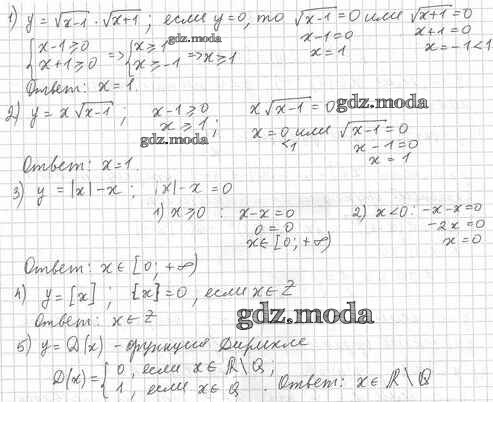 1) y = √x-1 · √x+1 ; если y=0, то √x-1 = 0 или √x+1 = 0
{ x-1 ≥ 0 x+1 ≥ 0 => { x ≥ 1 x ≥ -1 => x ≥ 1 x-1=0 x+1=0
gdz.moda
x=1 x=-1<1
Ответ: x=1.
2) y = x√x-1 ; x-1 ≥ 0 x√x-1 = 0 gdz.moda
x ≥ 1 ; x=0 или √x-1 = 0
gdz.moda <1 x-1=0
x=1
Ответ: x=1.
3) y = |x|-x ; |x|-x = 0
1) x ≥ 0 : x-x=0 2) x<0: -x-x=0
0=0 -2x=0
x∈[0;+∞) x=0
Ответ: x∈[0;+∞)
4) y=[x] ; {x}=0, если x∈Z
Ответ: x∈Z gdz.moda
5) y=D(x) - функция Дирихле
D(x)={ 0, если x∈R\Q, 1, если x∈Q . Ответ: x∈R\Q